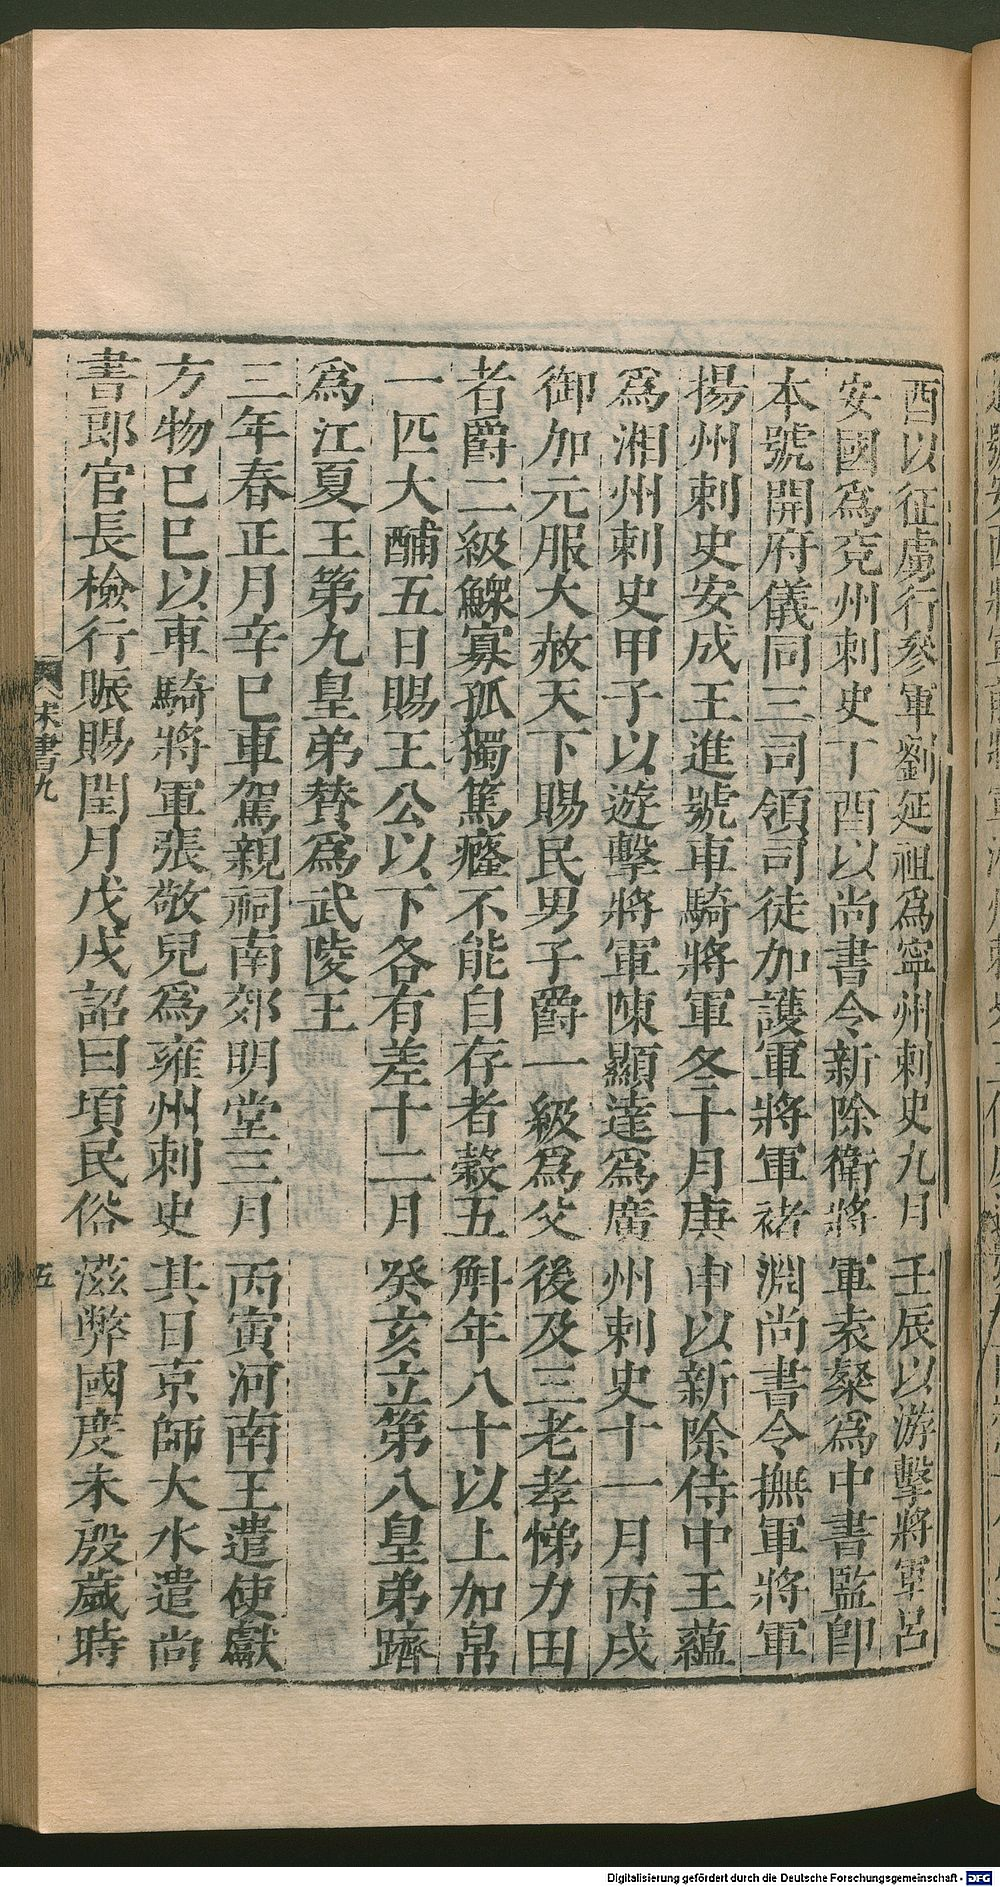 酉以征虜行參軍劉延祖爲寧州刺史九月壬辰以游擊將軍呂
安國爲兗州刺史丁酉以尚書令新除衛將軍袁粲爲中書監卽
本號開府儀同三司領司徒加護軍將軍褚淵尚書令撫軍將軍
揚州刺史安成王進號車騎將軍冬十月庚申以新除侍中王蘊
爲湘州刺史甲子以遊擊將軍陳顯達爲廣州刺史十一月丙戌
御加元服大赦天下賜民男子爵一級爲父後及三老孝悌力田
者爵二級鰥寡孤獨篤癃不能自存者穀五斛年八十以上加帛
一匹大酺五日賜王公以下各有差十二月癸亥立第八皇弟躋
爲江夏王第九皇弟贊爲武陵王
三年春正月辛巳車駕親祠南郊明堂三月丙寅河南王遣使獻
方物巳巳以車騎將軍張敬兒爲雍州刺史其日京師大水遣尚
書郎官長檢行賑賜閏月戊戌詔曰頃民俗滋弊國度未殷歲時
宋書九
五
Digitalisierung gefördert durch die Deutsche Forschungsgemeinschaft - DFG